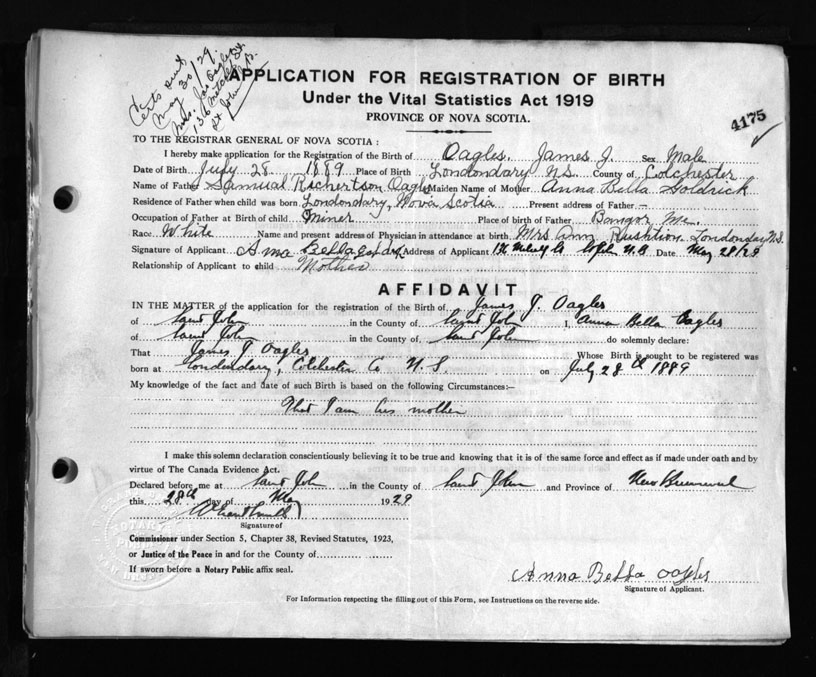 Certs sent
May 30/29.
Mrs. Jas Oagles
136 Metcalf St.
St John N.B.
APPLICATION FOR REGISTRATION OF BIRTH
Under the Vital Statistics Act 1919
4175
PROVINCE OF NOVA SCOTIA.
TO THE REGISTRAR GENERAL OF NOVA SCOTIA :
I hereby make application for the Registration of the Birth of Oagles. James J. Sex Male
Date of Birth July 28, 1889 Place of Birth Londondary N.S. County of Colchester
Name of Father Samual Richertson Oagles Maiden Name of Mother Anna Bella Goldrick
Residence of Father when child was born Londondary, Nova Scotia Present address of Father —
Occupation of Father at Birth of child Miner Place of birth of Father Bangor Me.
Race White Name and present address of Physician in attendance at birth Mrs Ann Rushtion Londonday N.S.
Signature of Applicant Anna Bella Oagles Address of Applicant St John N.B Date May 28/29
Relationship of Applicant to child Mother
AFFIDAVIT
IN THE MATTER of the application for the registration of the Birth of James J. Oagles
of Saint John in the County of Saint John I, Anna Bella Oagles
of Saint John in the County of Saint John do solemnly declare:
That James J Oagles Whose Birth is sought to be registered was
born at Londondary, Colchester Co N.S on July 28th 1889
My knowledge of the fact and date of such Birth is based on the following Circumstances:—
That I am his mother
I make this solemn declaration conscientiously believing it to be true and knowing that it is of the same force and effect as if made under oath and by
virtue of The Canada Evidence Act.
Declared before me at Saint John in the County of Saint John and Province of New Brunswick
this 28th day of May 1929
Signature of
Commissioner under Section 5, Chapter 38, Revised Statutes, 1923,
or Justice of the Peace in and for the County of
If sworn before a Notary Public affix seal.
Anna Bella Oagles
Signature of Applicant.
For Information respecting the filling out of this Form, see Instructions on the reverse side.